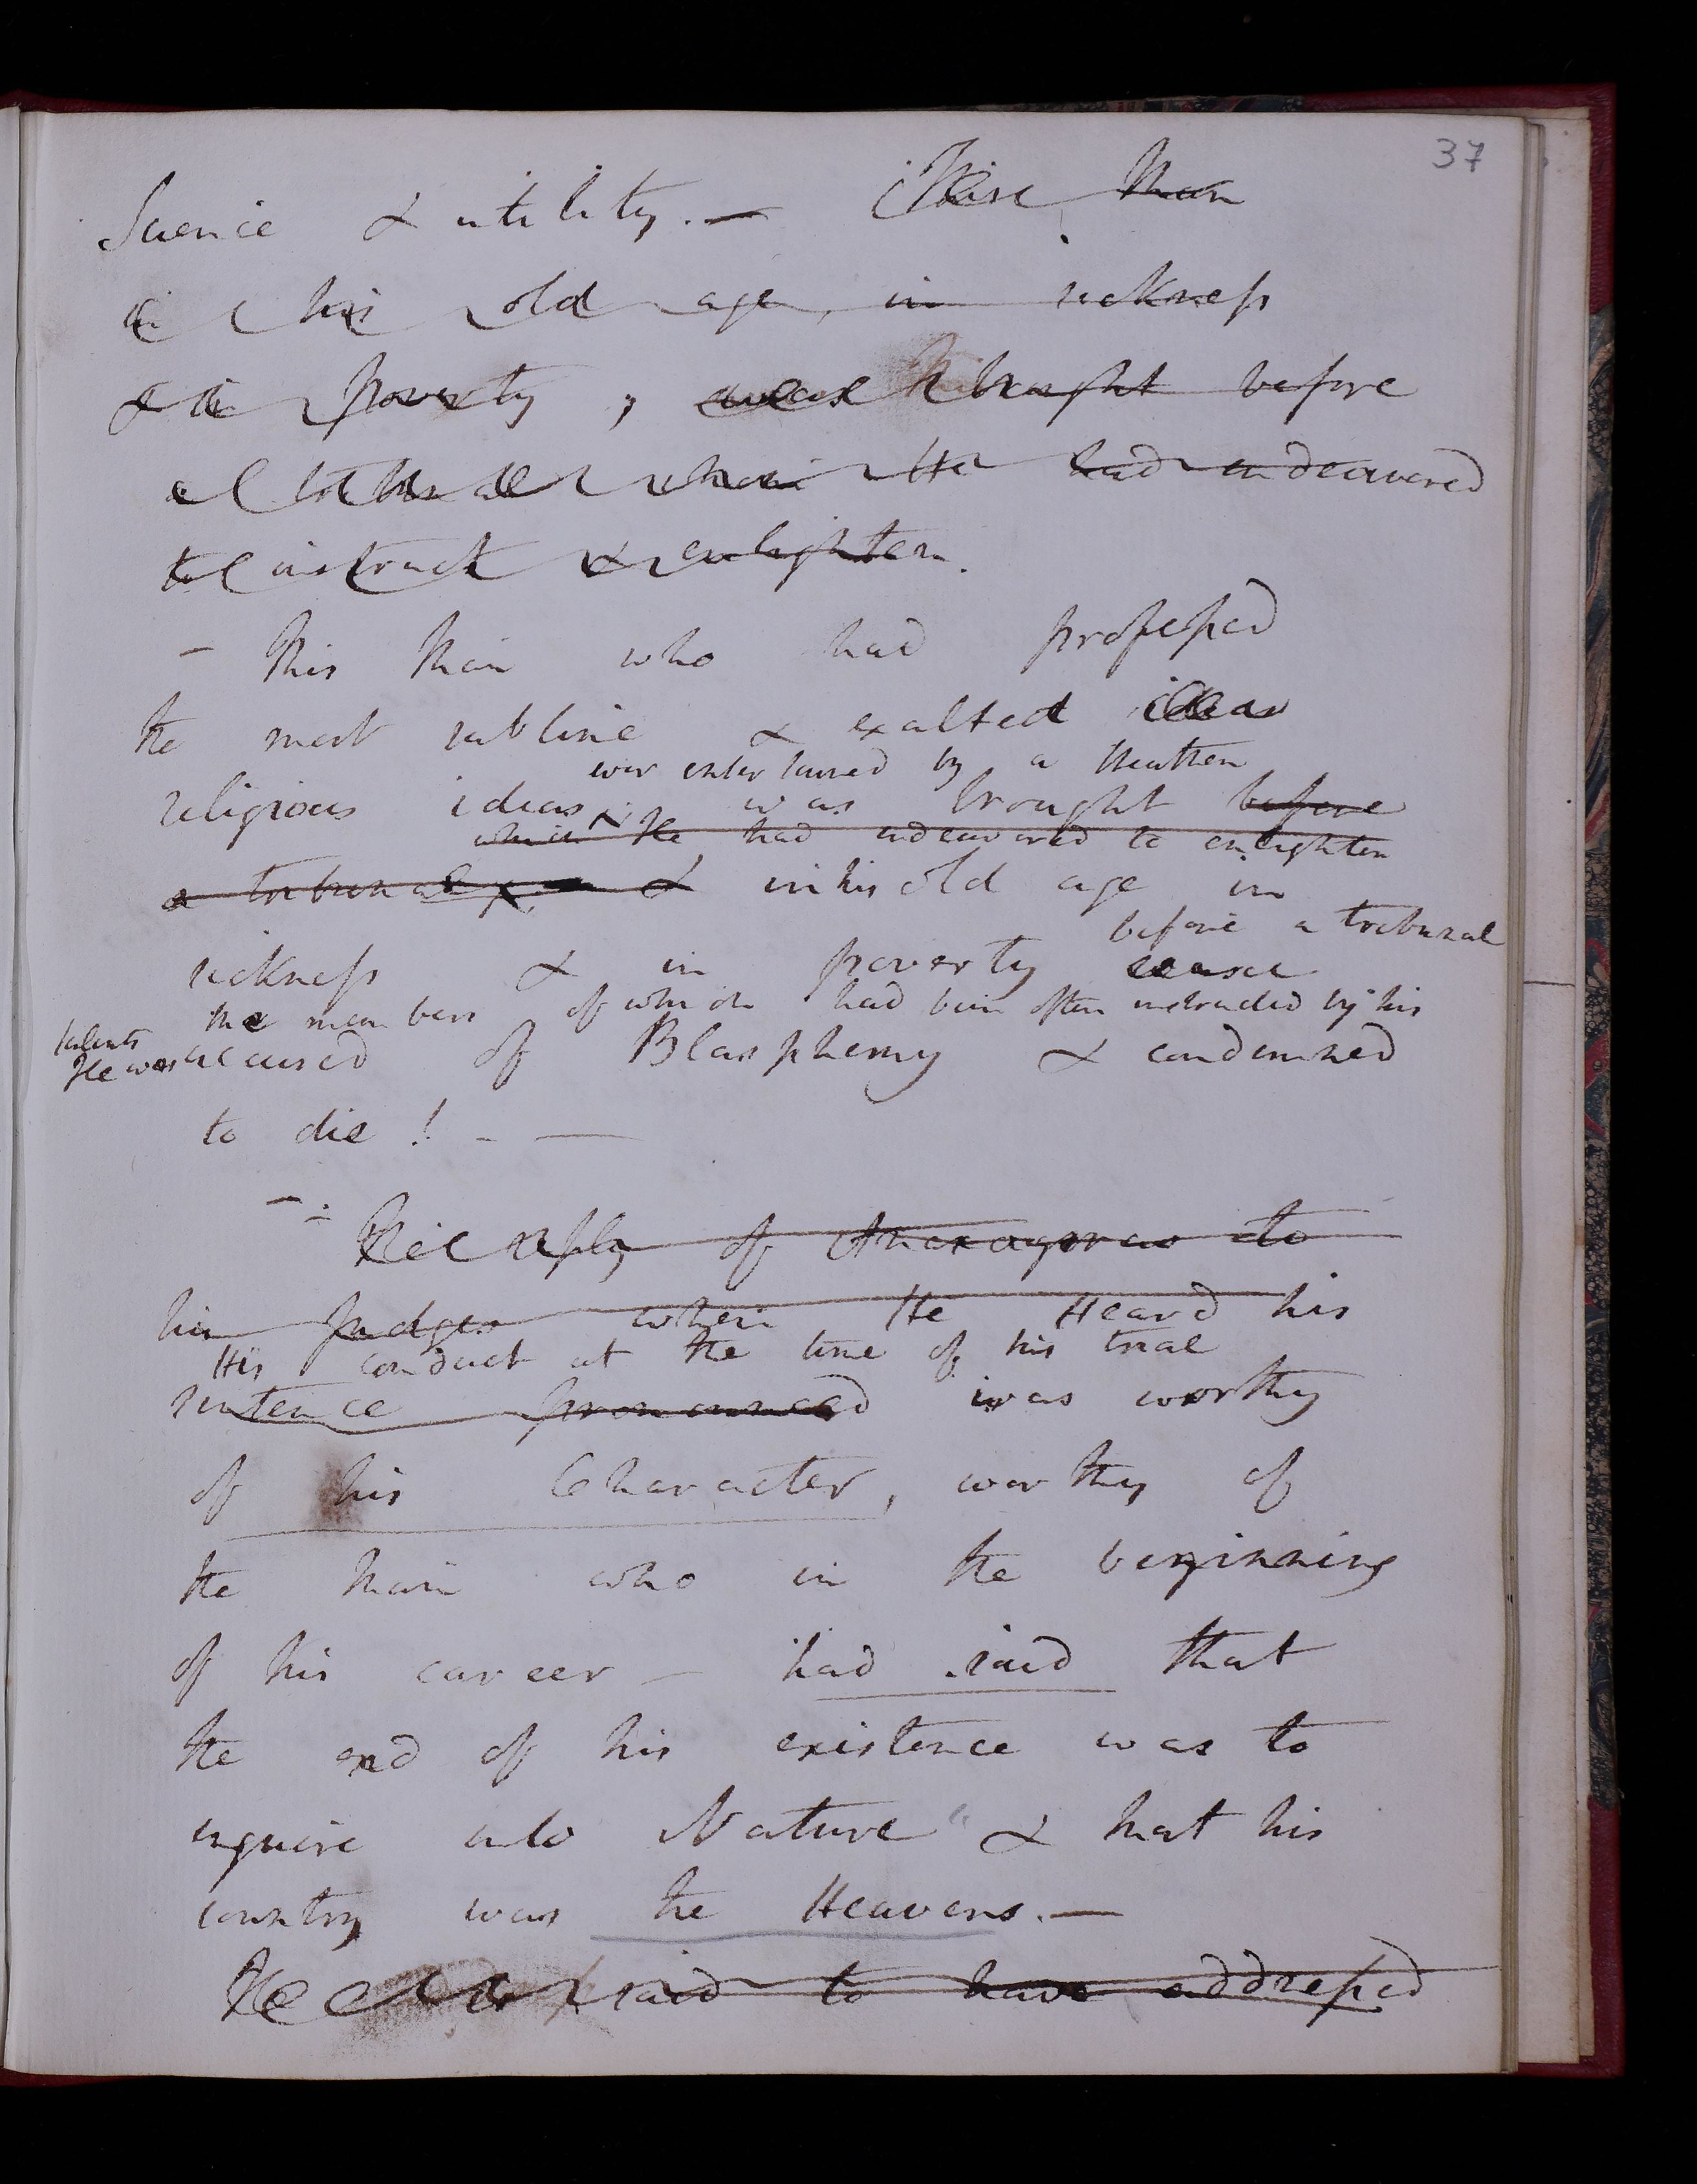 37
Science & utility. — This Man
in his old age, in sickness
& in poverty, was brought before
a tribunal whom He had endeavored
to instruct & enlighten.
– This Man who had professed
the most sublime & exalted ideas
ever entertained by a Heathen
religious ideas was brought before
which He had endeavored to enlighten
a tribunal & in his old age in
before a tribunal
sickness & in poverty
the members of which had been often instructed by his
talents
He was accused of Blasphemy & condemned
to die! - —
– The reply of Anaxagoras to
his Judges when He Heard his
His conduct at the time of his trial
sentence pronounced was worthy
of his Character, worthy of
the Man who in the beginning
of his career – had said that
the end of his existence was to
enquire into Nature" & that his
country was the Heavens. —
He is said to have addressed